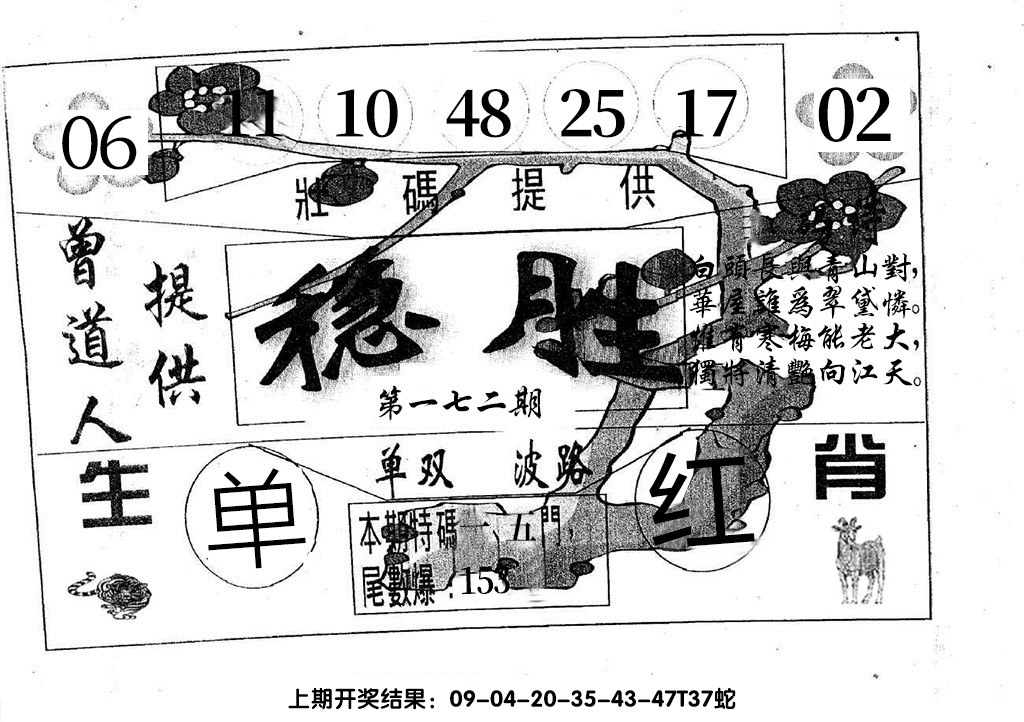 06 11 10 48 25 17 02
壯碼提供
曾道人
提供
稳胜
第一七二期
白頭長與青山對，
華屋誰爲翠黛憐。
惟有寒梅能老大，
獨將清艷向江天。
单双 波路
生肖
单 红
本期特碼一、五門，
尾數爆：153
上期开奖结果：09-04-20-35-43-47T37蛇